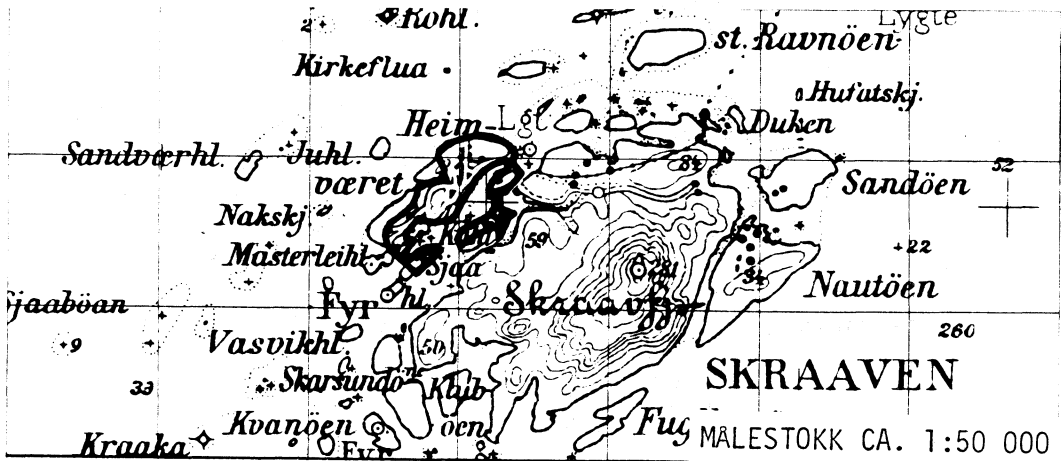 2 Kohl. Lygte
st. Ravnöen
Kirkeflua
Hufatskj.
Heim- Lgt Duken
Sandværhl. Juhl. 84 52
været Sandöen
Nakskj.
59
Masterleihl. Sjaa 281 22
34 Nautöen
Sjaaböan Fyr hl. Skraavfj.
260
9 Vasvikhl. 50
33 Skarsundö Klub SKRAAVEN
Kvanöen öen Fug
Kraaka Fyr MÅLESTOKK CA. 1:50 000